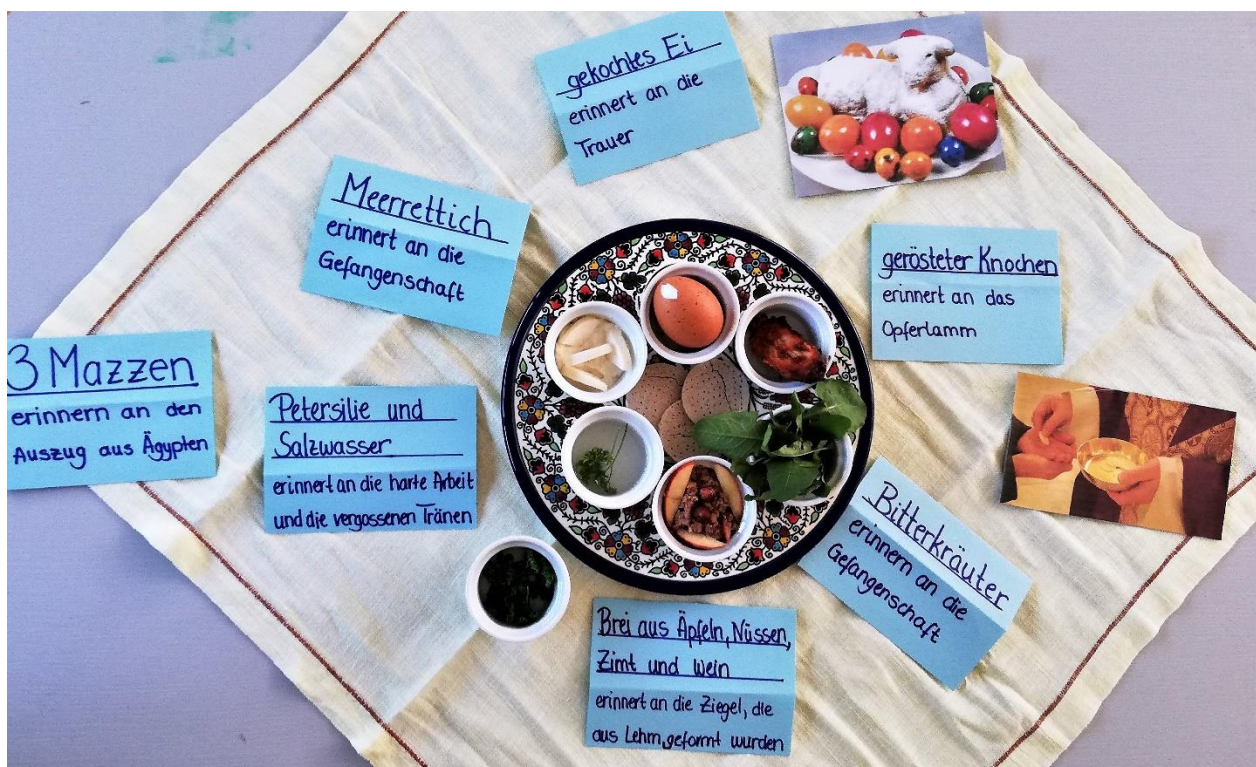 gekochtes Ei
erinnert an die
Trauer
Meerrettich
erinnert an die
Gefangenschaft
gerösteter Knochen
erinnert an das
Opferlamm
3 Mazzen
erinnern an den
Auszug aus Ägypten
Petersilie und
Salzwasser
erinnert an die harte Arbeit
und die vergossenen Tränen
Bitterkräuter
erinnern an die
Gefangenschaft
Brei aus Äpfeln, Nüssen,
Zimt und Wein
erinnert an die Ziegel, die
aus Lehm geformt wurden